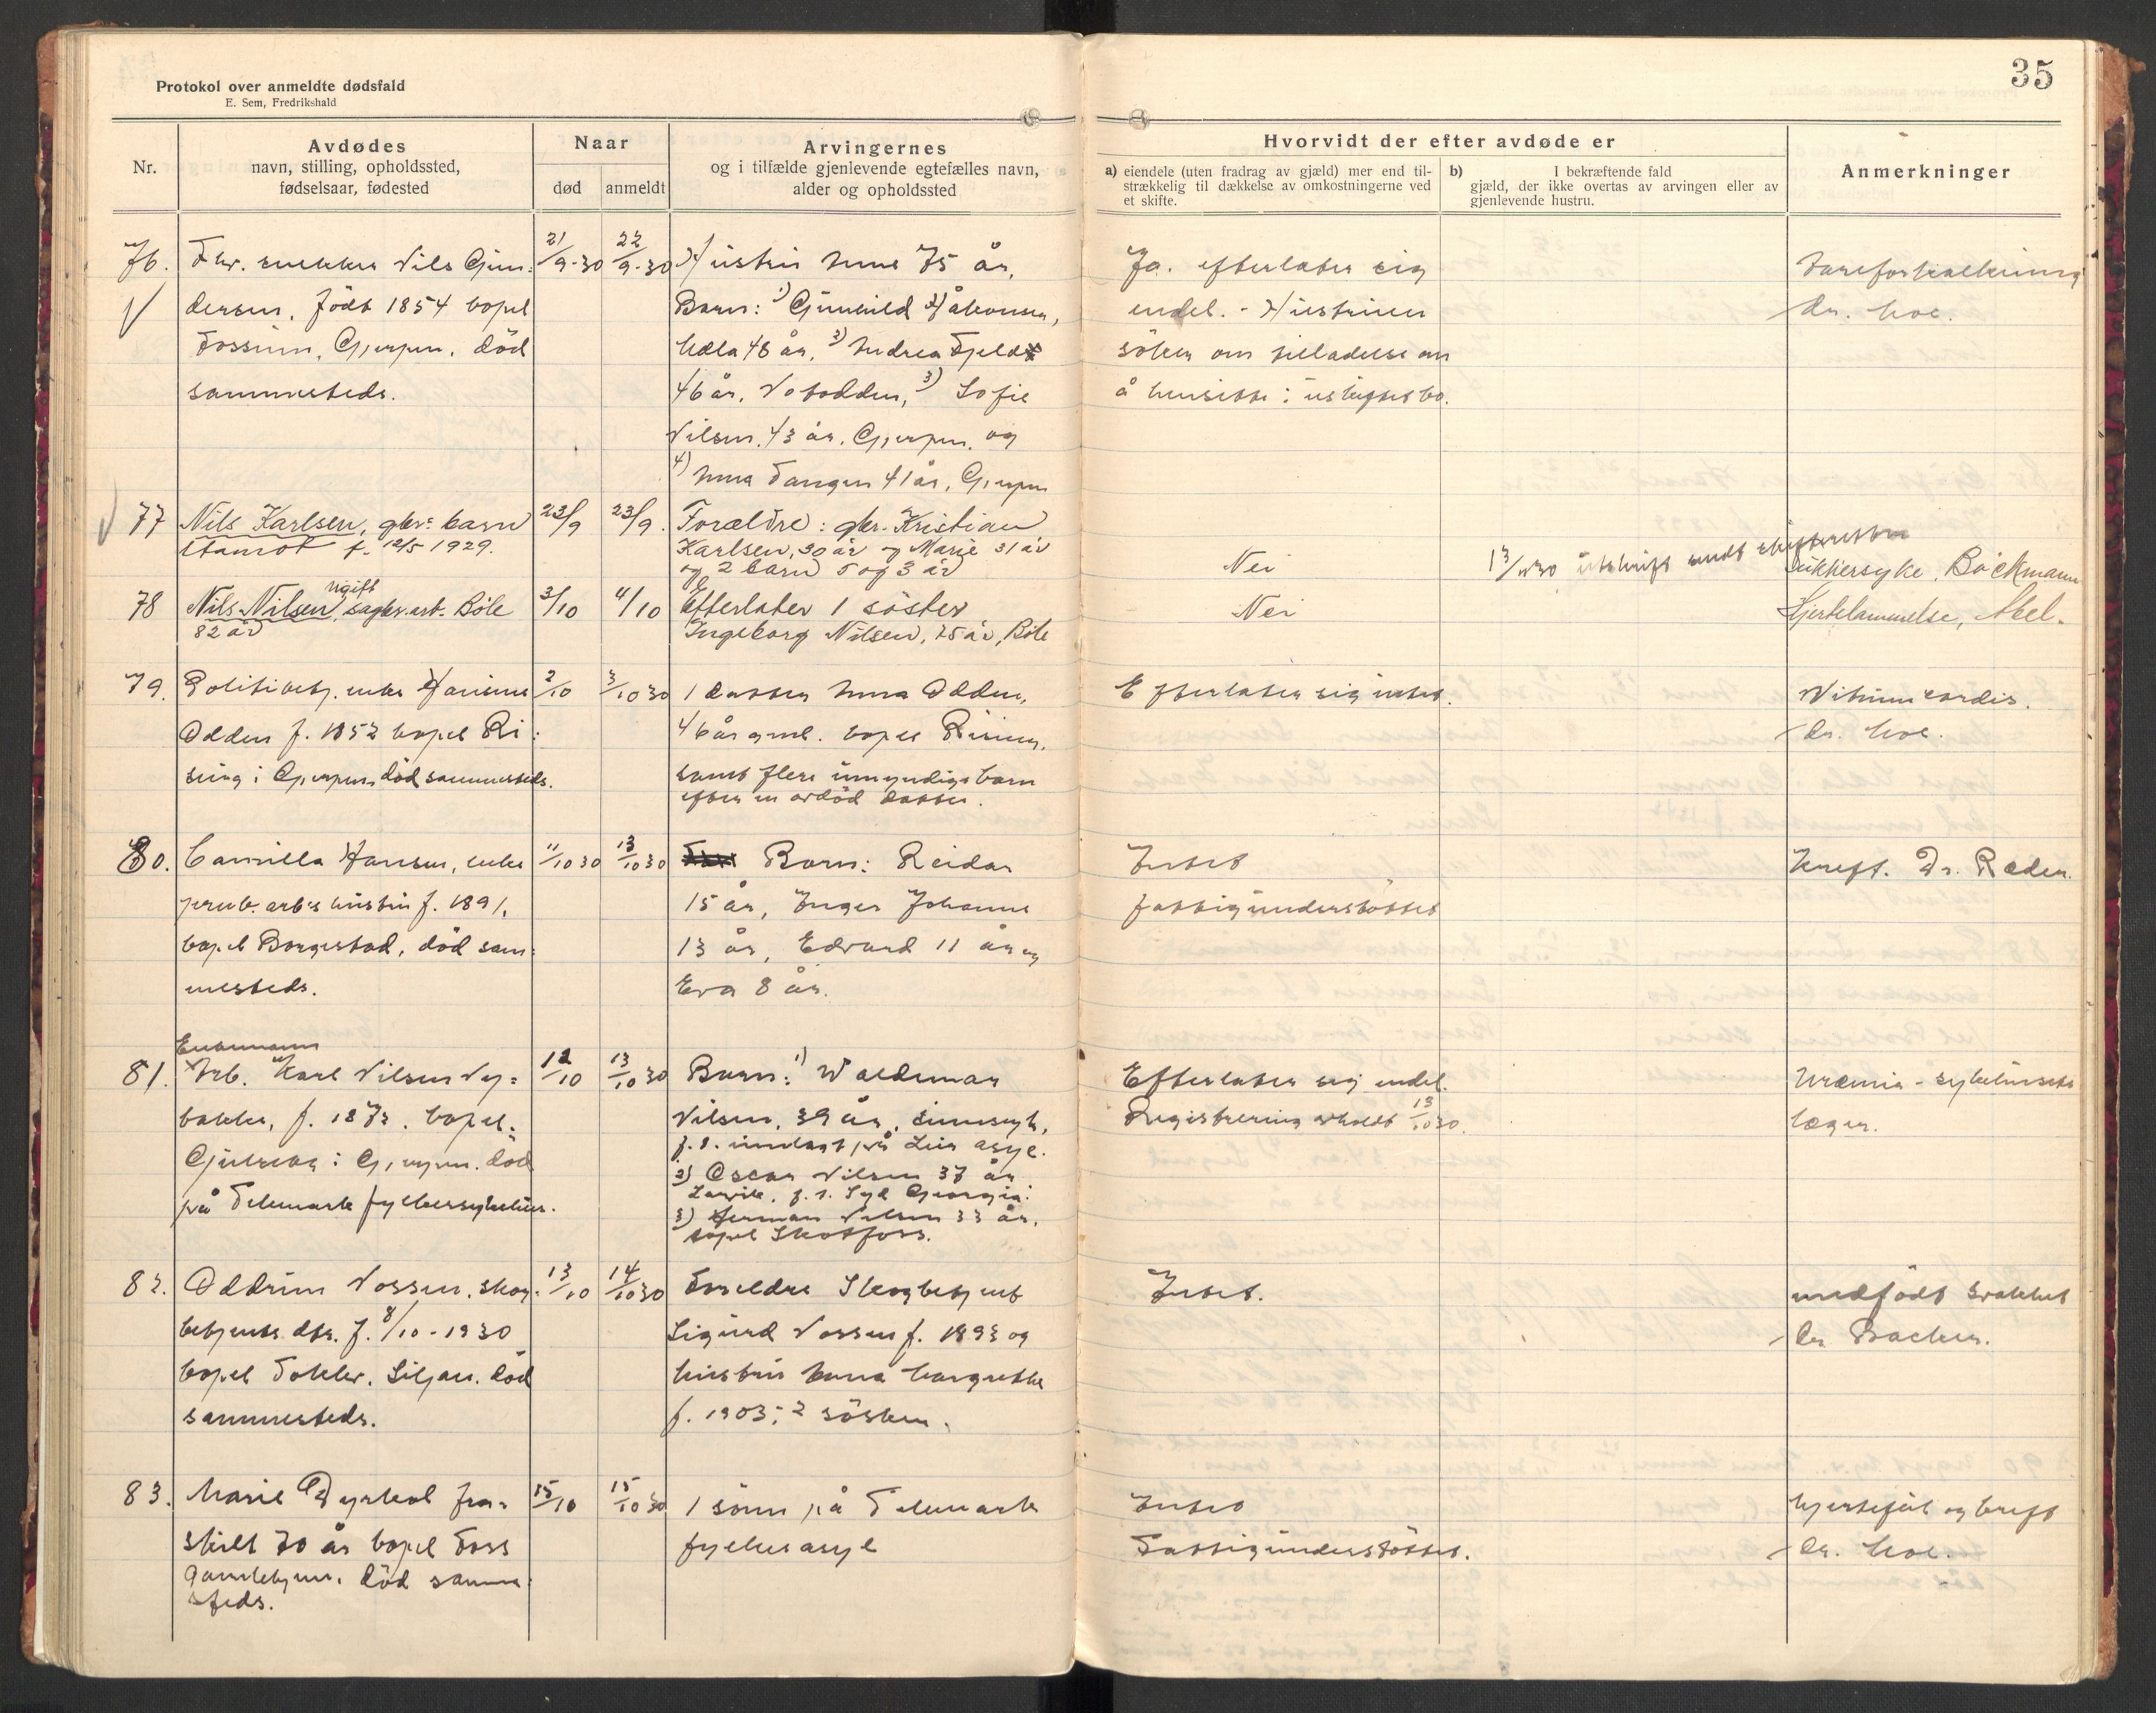 Protokol over anmeldte dødsfald
E. Sem, Fredrikshald
35
Nr.
Avdødes
navn, stilling, opholdssted,
fødselsaar, fødested
Naar
død
anmeldt
Arvingernes
og i tilfælde gjenlevende egtefælles navn,
alder og opholdssted
Hvorvidt der efter avdøde er
a) eiendele (uten fradrag av gjæld) mer end til-
strækkelig til dækkelse av omkostningerne ved
et skifte.
b) I bekræftende fald
gjæld, der ikke overtas av arvingen eller av
gjenlevende hustru.
Anmerkninger
76. Fhv. snekker Nils Gun-
dersen, född 1854 bopel
Fossum, Gjerpen. död
sammesteds.
21/9-30
22/9-30
Hustru Anne 75 år,
Barn: 1) Gunhild Håkonsen,
48 år, 2) Andrea Fjeld
46 år, Notodden, 3) Sofie
Nilsen 43 år, Gjerpen og
4) Anna Tangen 41 år, Gjerpen
Ja. efterlater sig
endel. - Hustruen
söker om tilladelse om
å hensitte i uskiftet bo.
Åreforkalkning
dr. Moe.
77 Nils Karlsen, gbr. barn
f. 12/5 1929.
23/9
23/9.
Forældre: gbr. Kristian
Karlsen, 30 år og Marie 31 år
og 2 barn 5 og 3 år
Nei
13/ 30 utskrift sendt skifteretten
Sukkersyke, Bøckmann
78 Nils Nilsen, ugift sagbr.arb. Böle
82 år
3/10
4/10
Efterlater 1 söster
Ingeborg Nilsen, 75 år, Böle
Nei
Hjertelammelse, Abel.
79. Politibetj. enke Hansine
Odden f. 1852 bopel Ri-
sing i Gjerpen död sammesteds.
2/10
3/10 30
1 datter Anna Odden,
46 år gml. bopel Rising,
samt flere umyndige barn
efter en avdöd datter.
Efterlater sig intet.
Vitium cordis.
dr. Moe.
80. Camilla Hansen, enke
arb's hustru f. 1891,
bopel Borgestad, död sam-
mesteds.
11/10 30
13/10 30
Barn: Reidar
15 år, Inger Johanne
13 år, Edvard 11 år og
Eva 8 år.
Intet
fattigunderstöttet
Kreft. Dr. Ræder.
81. Enkemann
Arb. Karl Nilsen Ny-
bakke, f. 1873. bopel:
Gulseth i Gjerpen. död
på Telemark fylkessykehus.
12/10
13/10 30
Barn: 1) Waldemar
Nilsen, 39 år, sinnsyk,
f. t. innlagt på Lier asyl.
2) Oscar Nilsen 37 år
Larvik, f. t. Syd Georgia.
3) Herman Nilsen 33 år,
bopel Skotfoss.
Efterlater sig endel.
Registrering avholdt 13/10 30.
Uræmia - sykehusets
læger.
82. Oddrun Vossen, skog-
betjents dtr. f. 8/10-1930
bopel Siljan. död
sammesteds.
13/10
14/10 30
Foreldre Skogbetjent
Sigurd Vossen f. 1893 og
hustru Anna Margrethe
f. 1903; 2 sösken.
Intet.
medfödt svakhet
dr Backer.
83. Marie Dyrkol fra-
skilt 70 år bopel Foss
Gamlehjem. död samme-
steds.
15/10
15/10 30
1 sönn på Telemark
fylkesasyl
Intet
Fattigunderstöttet.
hjertefeil og kreft
dr. Moe.